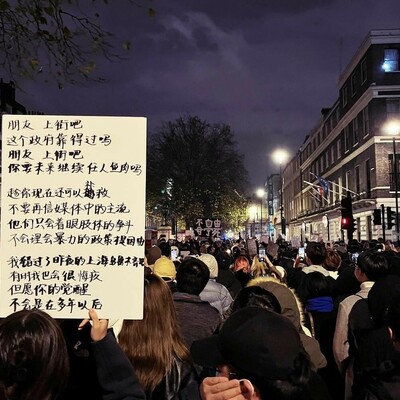 朋友 上街吧
这个政府靠得过吗
朋友 上街吧
你要未来继续任人鱼肉吗
趁你现在还可以补救
不要再信媒体中的主流
他们只会着眼肢体的争斗
不会理会暴力的政策提因由
我错过了昨夜的乌鲁木齐路
有时我也会很悔疚
但愿你的觉醒
不会是在多年以后
不自由